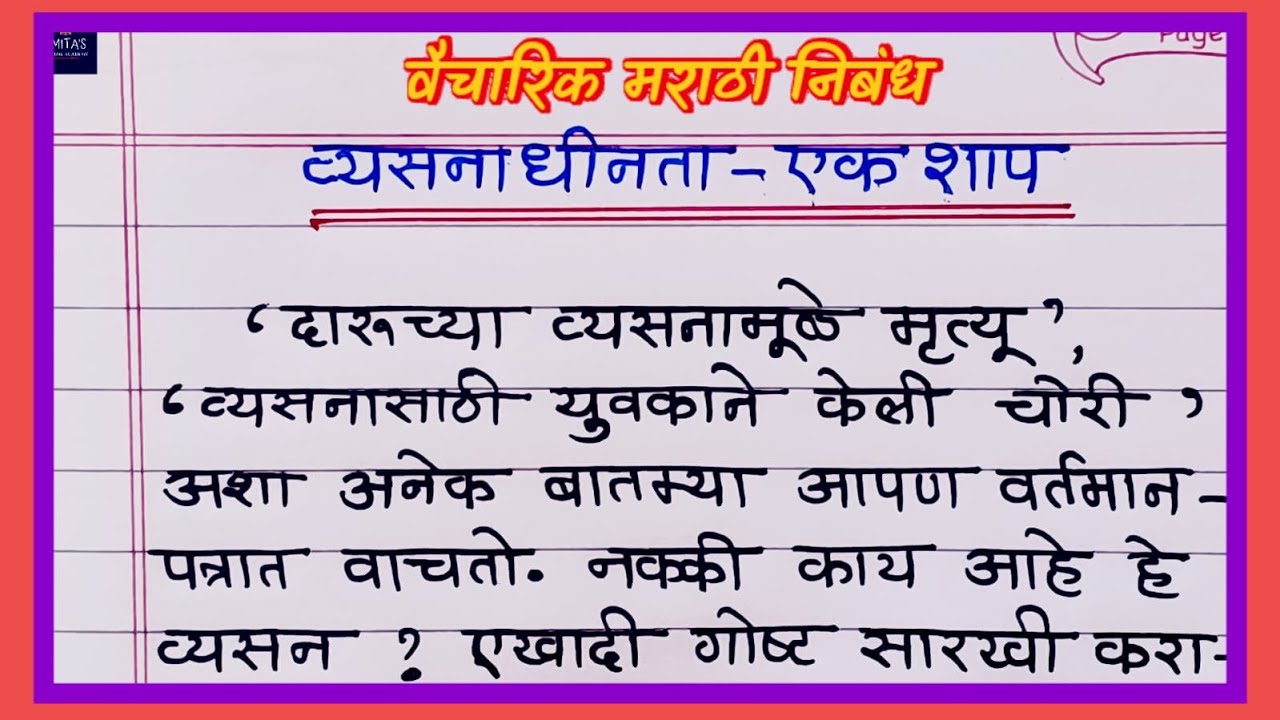 MITA'S
Page
वैचारिक मराठी निबंध
व्यसनाधीनता - एक शाप
‘दारूच्या व्यसनामूळे मृत्यू’,
‘व्यसनासाठी युवकाने केली चोरी’
अशा अनेक बातम्या आपण वर्तमान-
पत्रात वाचतो. नक्की काय आहे हे
व्यसन ? एखादी गोष्ट सारखी करा-